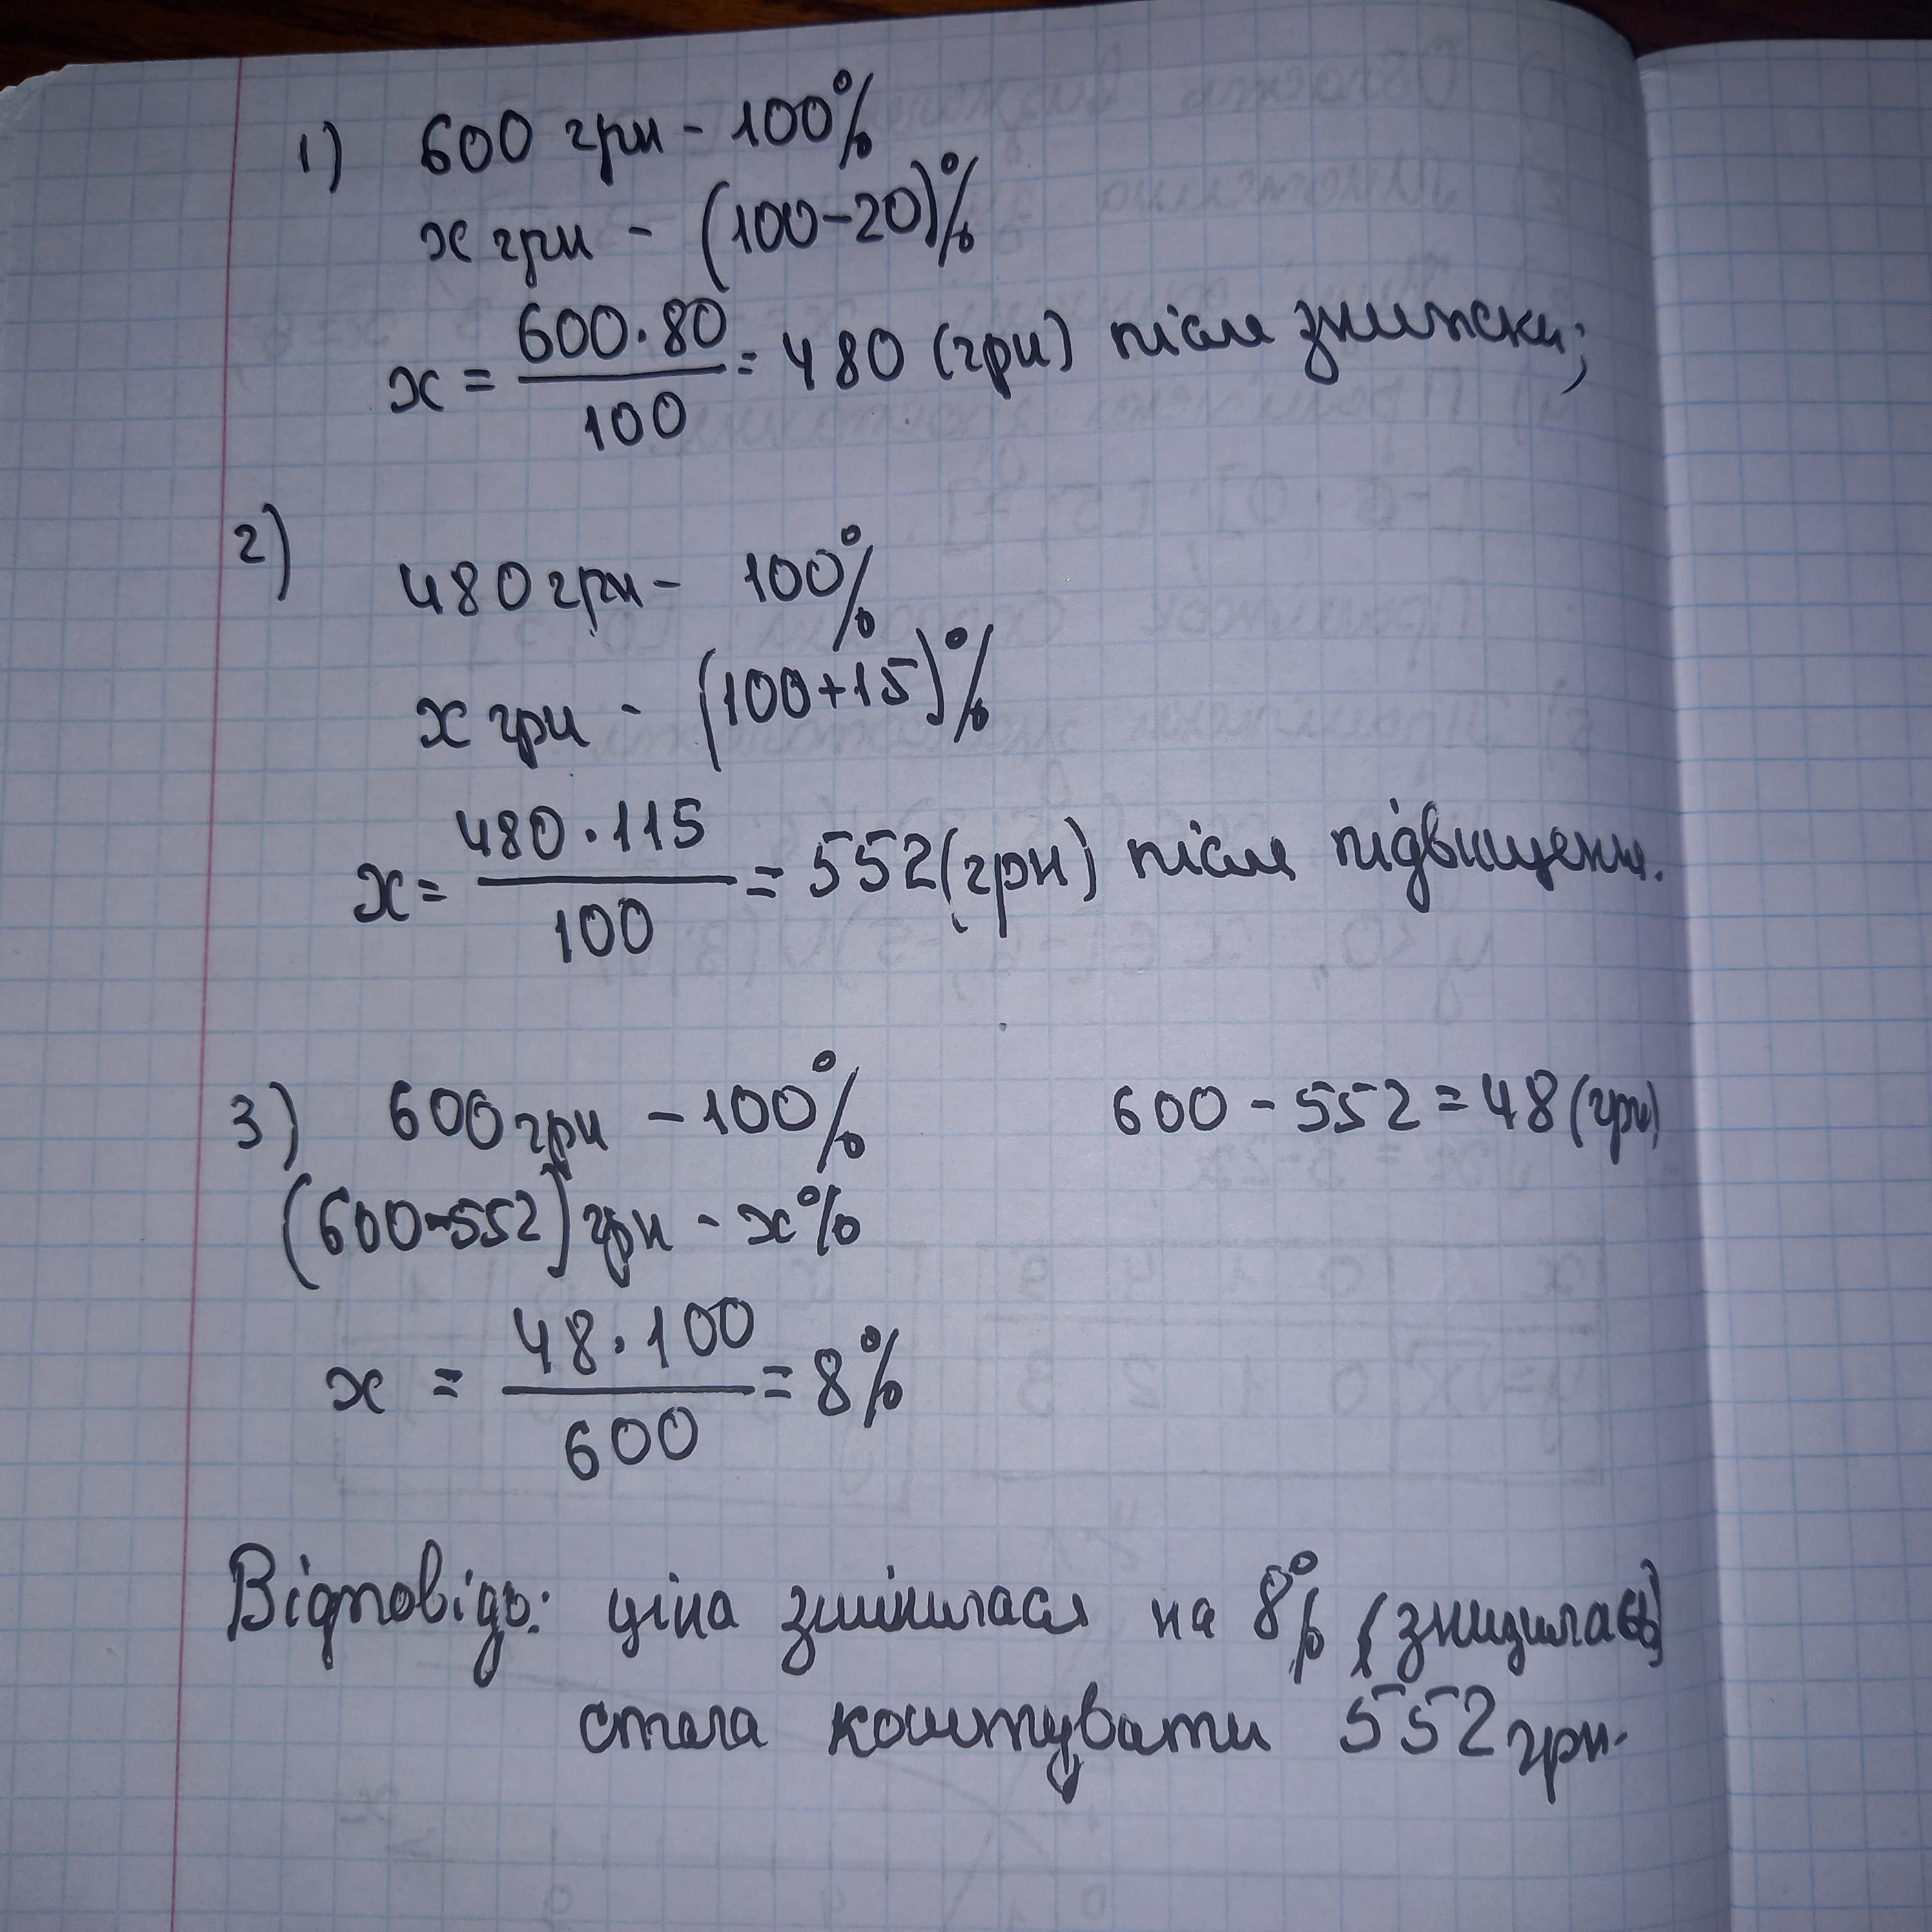 1) 600 грн - 100%
x грн - (100-20)%
x = 600·80 / 100 = 480 (грн) після знижки;
2) 480 грн - 100%
x грн - (100+15)%
x = 480·115 / 100 = 552 (грн) після підвищення.
3) 600 грн - 100% 600 - 552 = 48 (грн)
(600-552) грн - x%
x = 48·100 / 600 = 8%
Відповідь: ціна змінилася на 8% (знизилась)
стала коштувати 552 грн.